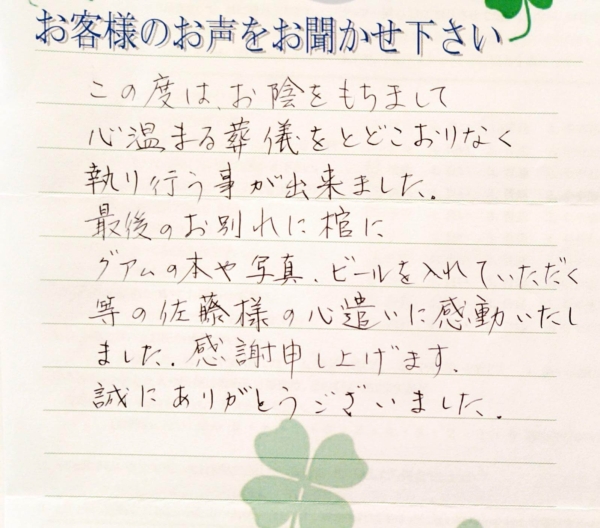 お客様のお声をお聞かせ下さい
この度は、お陰をもちまして
心温まる葬儀をとどこおりなく
執り行う事が出来ました。
最後のお別れに棺に
グアムの本や写真、ビールを入れていただく
等の佐藤様の心遣いに感動いたし
ました。感謝申し上げます。
誠にありがとうございました。